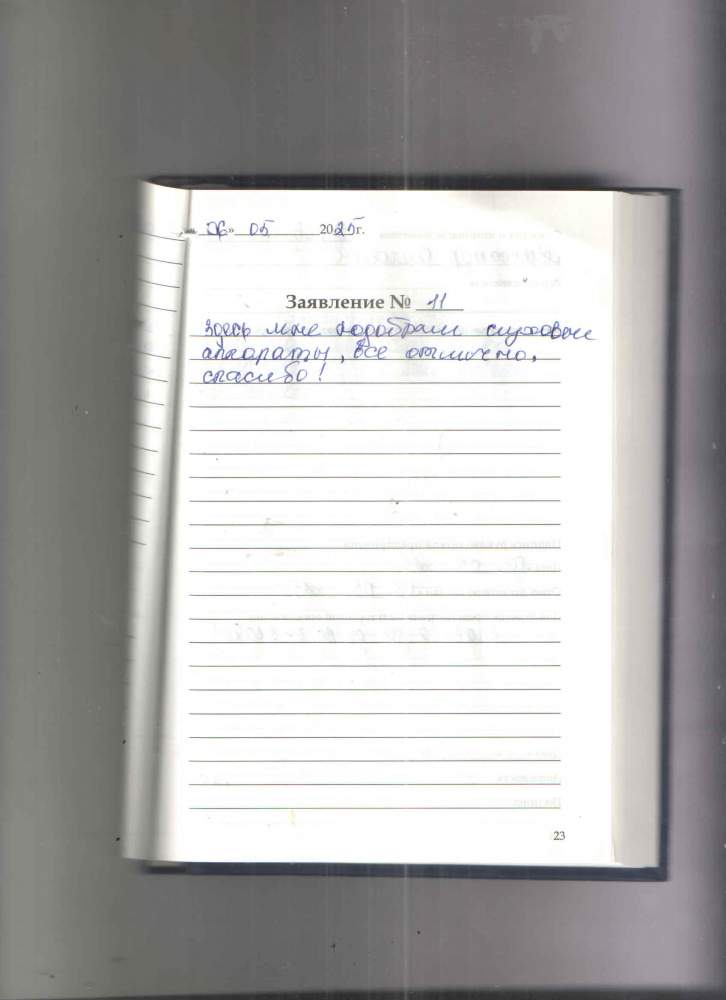 « 06» 05 2025г.
Заявление № 11
Здесь мне подобрали слуховые
аппараты, все отлично,
спасибо!
23